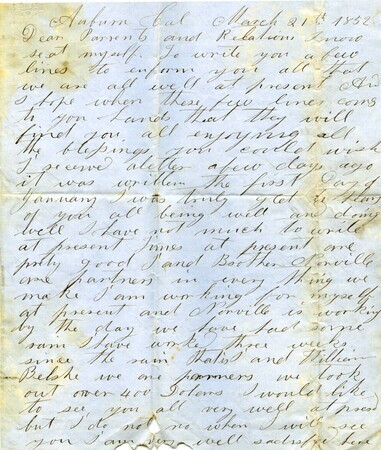 Auburn Cal March 21th 1852
Dear Parrents and Relations I now
seat myself To write you a few
lines to enform you all that
we are all well at present And
I hope when these few lines come
to you hands that they will
find you all enjoying all
the blessings you couldst wish
I receive a letter a few days ago
it was written the first Day of
January I was truly glad to hear
of you all being well and doing
well I have not much to write
at present times at present are
prity good I and Brother Norville
are partners in every thing we
make I am working for myself
at present and Norville is working
by the day we have had some
rain I have worke three weeks
since the rain that is I and William
Belshe we are partners we took
out over 400 Dolars I would like
to see you all very well at present
but I do not no when I will see
you I am very well sadisfie here